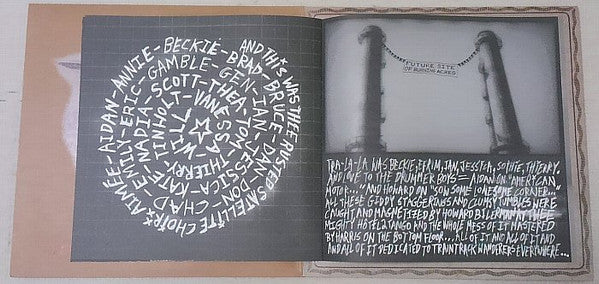 AND THIS WAS THEE RUSTED SATELLITE CHOIR: AIMÉE-AIDAN-ANNIE-BECKIE-BRAD-BRUCE-DAN-DON-CHAD-EMILY-ERIC-GAMBLE-GEN-IAN-JESSICA-KATE-NADIA-SCOTT-THEA-TOM-THIERRY-TINHOLT-VANESSA-WILL
FUTURE SITE
OF BURNING ACRES
TRA-LA-LA WAS BECKIE, EFRIM, IAN, JESSICA, SOPHIE, THIERRY.
AND LOVE TO THE DRUMMER BOYS — AIDAN ON "AMERICAN
MOTOR..." AND HOWARD ON "SOW SOME LONESOME CORNER..."
ALL THESE GIDDY STAGGERINGS AND CLUMSY TUMBLES WERE
CAUGHT AND MAGNETIFIED BY HOWARD BILERMAN AT THEE
MIGHTY HOTEL2TANGO AND THE WHOLE MESS OF IT MASTERED
BY HARRIS ON THE BOTTOM FLOOR... ALL OF IT AND ALL OF IT AND
AND ALL OF IT DEDICATED TO TRAINTRACK WANDERERS EVERYWHERE...